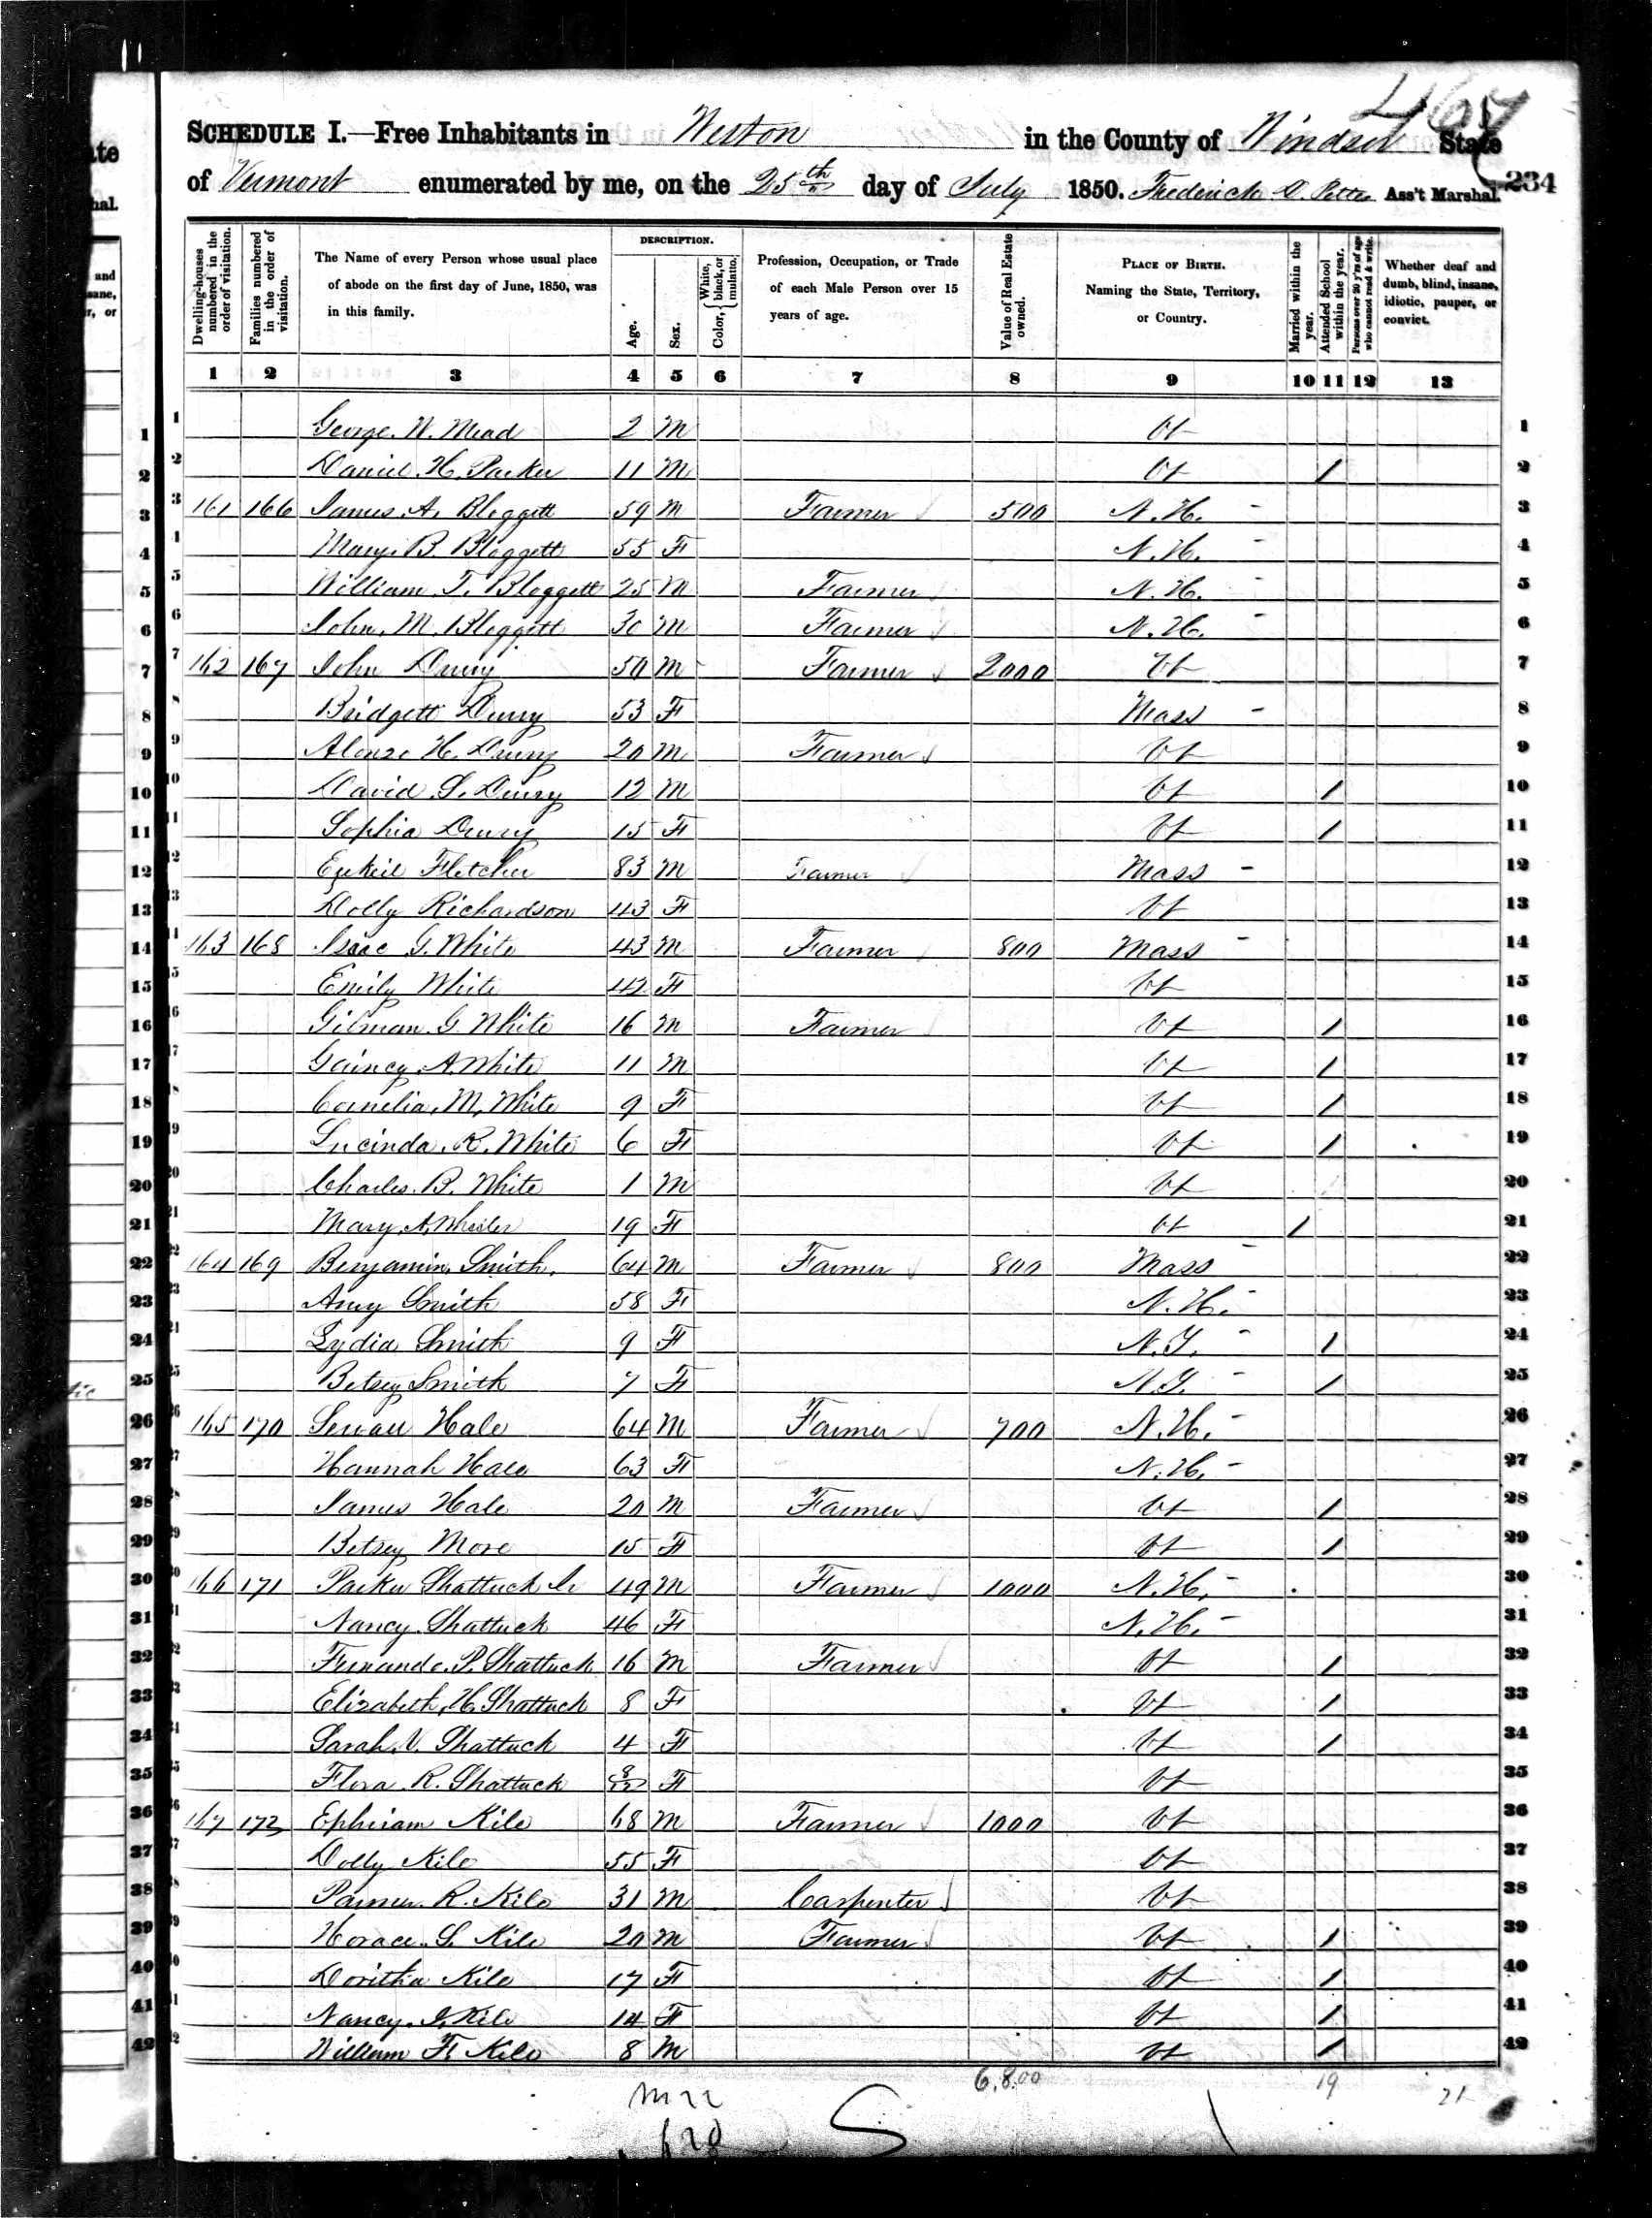 467
SCHEDULE I.—Free Inhabitants in Weston in the County of Windsor State
of Vermont enumerated by me, on the 25th day of July 1850. Frederick Ass't Marshal. 234
Dwelling-houses numbered in the order of visitation. Families numbered in the order of visitation. The Name of every Person whose usual place of abode on the first day of June, 1850, was in this family. DESCRIPTION. Age. Sex. Color, { White, black, or mulatto. Profession, Occupation, or Trade of each Male Person over 15 years of age. Value of Real Estate owned. PLACE OF BIRTH. Naming the State, Territory, or Country. Married within the year. Attended School within the year. Persons over 20 y'rs of age who cannot read & write. Whether deaf and dumb, blind, insane, idiotic, pauper, or convict.
1 2 3 4 5 6 7 8 9 10 11 12 13
1 George W. Mead 2 M Vt 1
2 Daniel H. Parker 11 M Vt / 2
3 161 166 James A. Bloggett 59 M Farmer 500 N.H. 3
4 Mary B Bloggett 55 F N.H. 4
5 William T. Bloggett 25 M Farmer N.H. 5
6 John M. Bloggett 30 M Farmer N.H. 6
7 162 167 John Drury 50 M Farmer 2000 Vt 7
8 Bridgett Drury 53 F Mass 8
9 Alonzo H. Drury 20 M Farmer Vt 9
10 David S. Drury 12 M Vt / 10
11 Sophia Drury 15 F Vt / 11
12 Ezekiel Fletcher 83 M Farmer Mass 12
13 Dolly Richardson 43 F Vt 13
14 163 168 Isaac G. White 43 M Farmer 800 Mass 14
15 Emily White 42 F Vt 15
16 Gilman G White 16 M Farmer Vt / 16
17 A. White 11 M Vt / 17
18 Cornelia M. White 9 F Vt / 18
19 Lucinda R. White 6 F Vt / 19
20 Charles B. White 1 M Vt 20
21 Mary A. Wheeler 19 F Vt / 21
22 164 169 Benjamin Smith 64 M Farmer 800 Mass 22
23 Amy Smith 58 F N.H. 23
24 Lydia Smith 9 F N.Y. / 24
25 Betsey Smith 7 F N.Y. / 25
26 165 170 Sewall Hale 64 M Farmer 700 N.H. 26
27 Hannah Hale 63 F N.H. 27
28 James Hale 20 M Farmer Vt / 28
29 Betsey More 15 F Vt / 29
30 166 171 Parker Shattuck Jr 49 M Farmer 1000 N.H. 30
31 Nancy Shattuck 46 F N.H. 31
32 Fernando P. Shattuck 16 M Farmer Vt / 32
33 Elizabeth H. Shattuck 8 F Vt / 33
34 Sarah V. Shattuck 4 F Vt / 34
35 Flora R. Shattuck 8/12 F Vt 35
36 167 172 Ephriam Kile 68 M Farmer 1000 Vt 36
37 Dolly Kile 55 F Vt 37
38 R. Kile 31 M Carpenter Vt 38
39 Horace S. Kile 20 M Farmer Vt / 39
40 Doritha Kile 17 F Vt / 40
41 Nancy J. Kile 14 F Vt / 41
42 William F. Kile 8 M Vt / 42
6,8.00 19 21
M 22